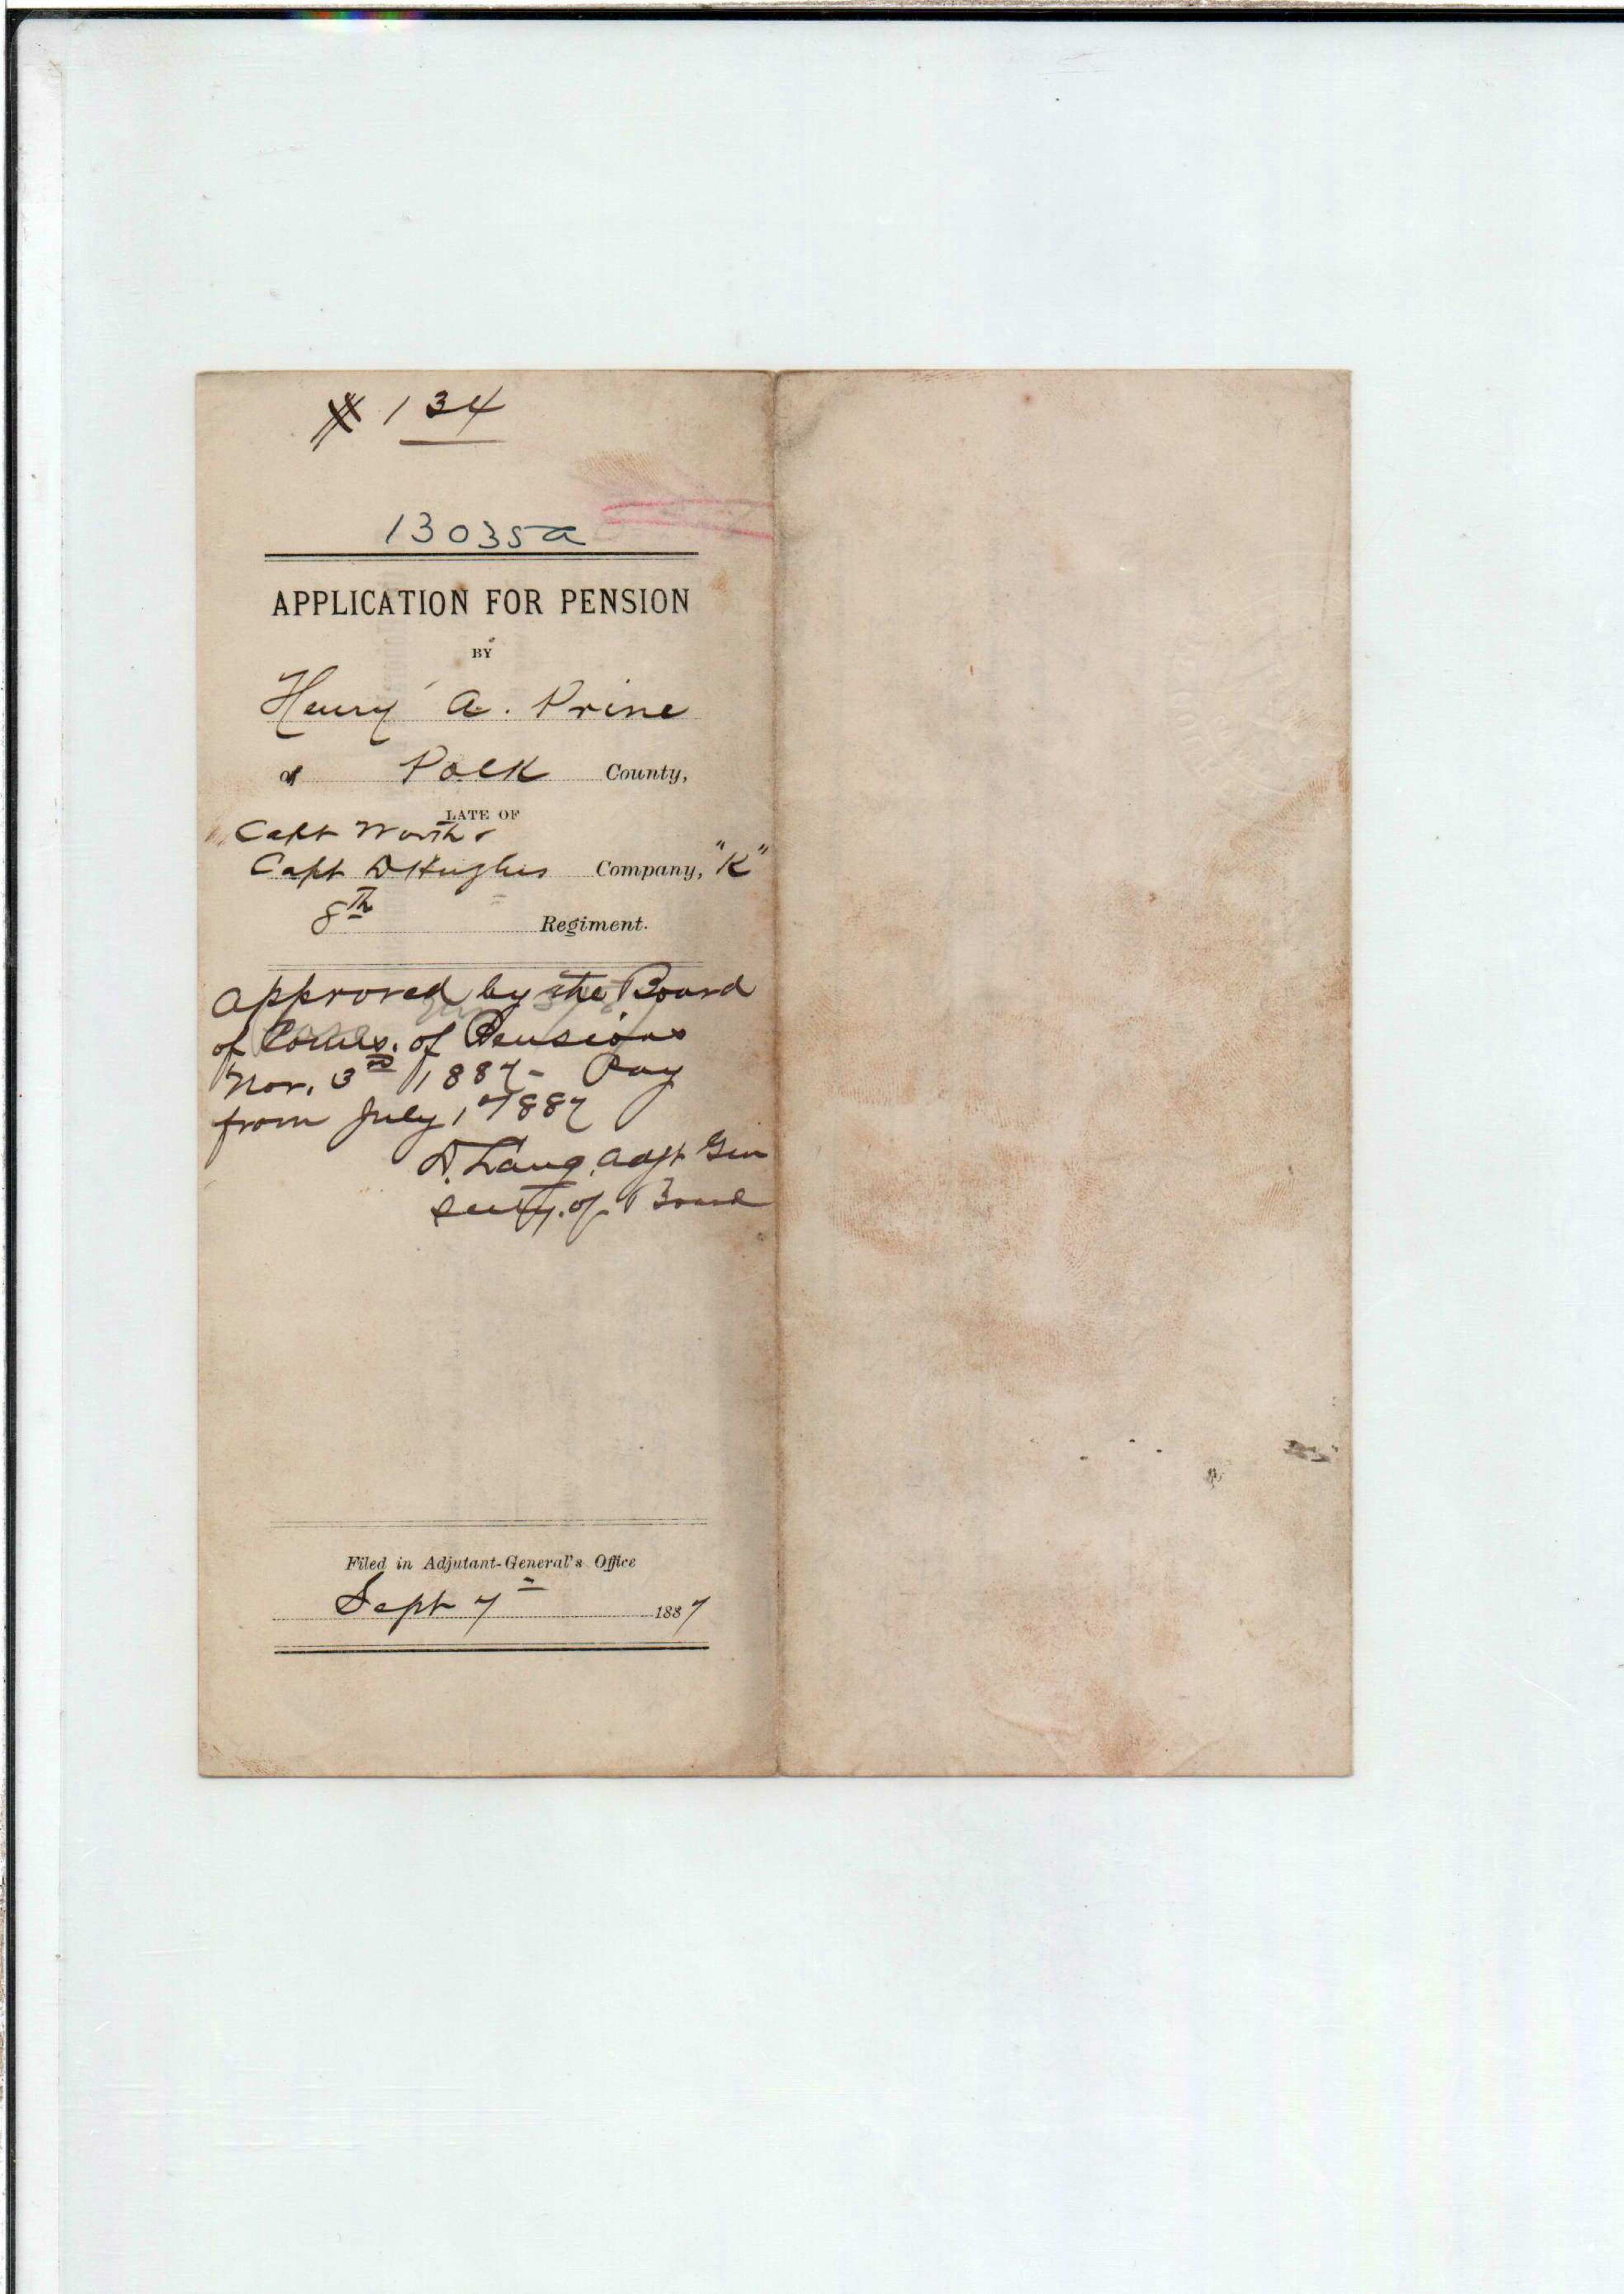 # 134
13035a
APPLICATION FOR PENSION
BY
Henry A. Prine
of Polk County,
LATE OF
Capt Worth &
Capt D Hughes Company, "K"
8th Regiment.
Approved by the Board
of Comrs. of Pensions
Nov. 3rd 1887 - Pay
from July 1st 1887
D. Lang, Adjt Gen
Secty. of Board
Filed in Adjutant-General's Office
Sept 7th 1887